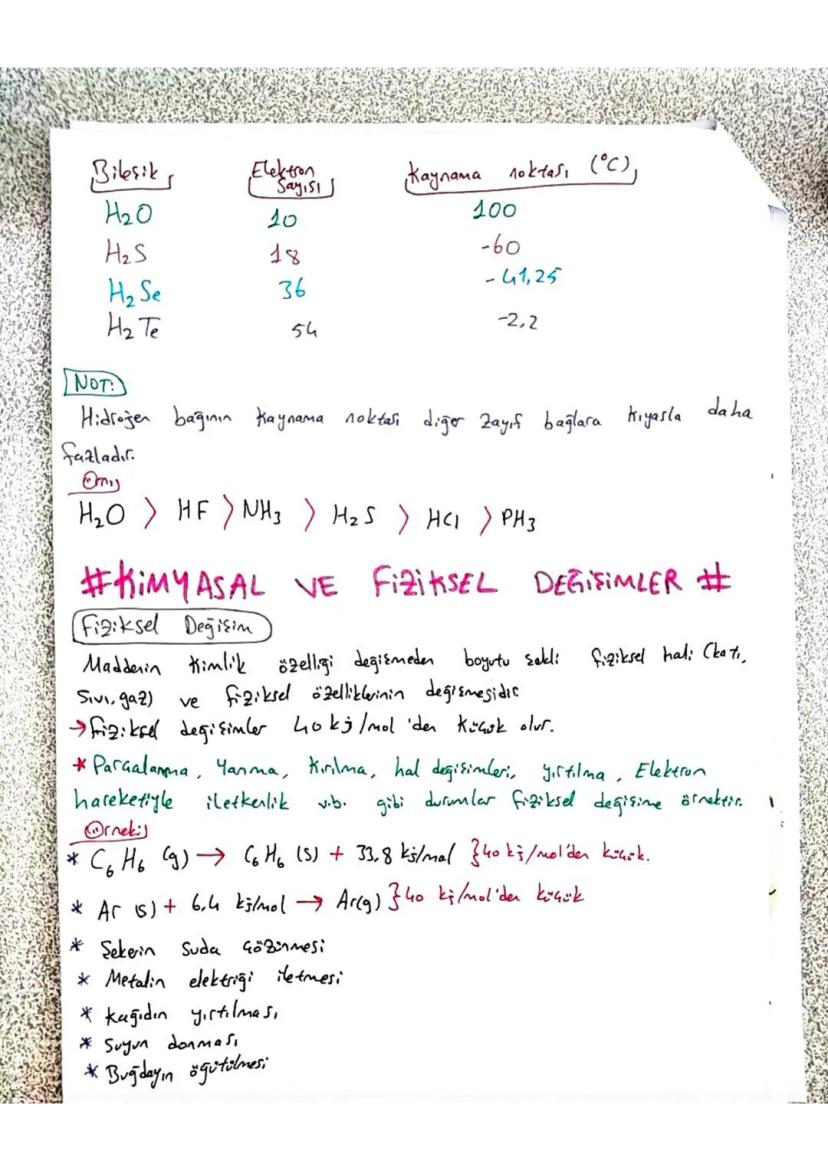 Bileşik Elektron Sayısı Kaynama noktası (°C)
H₂O 10 100
H₂S 18 -60
H₂Se 36 -41,25
H₂Te 54 -2,2
NOT:
Hidrojen bağının kaynama noktası diğer zayıf bağlara kıyasla daha
fazladır.
Örn:
H₂O > HF > NH₃ > H₂S > HCl > PH₃
#KİMYASAL VE FİZİKSEL DEĞİŞİMLER #
Fiziksel Değişim
Maddenin kimlik özelliği değişmeden boyutu şekli fiziksel hali (katı,
sıvı, gaz) ve fiziksel özelliklerinin değişmesidir
→ fiziksel değişimler 40 kj/mol 'den küçük olur.
* Parçalanma, Yanma, Kırılma, hal değişimleri, yırtılma, Elektron
hareketiyle iletkenlik v.b. gibi durumlar fiziksel değişime örnektir.
Örnek:
* C₆H₆ (g) → C₆H₆ (s) + 33,8 kj/mol }40 kj/mol'den küçük.
* Ar (s) + 6,4 kj/mol → Ar(g) }40 kj/mol'den küçük
* Şekerin suda çözünmesi
* Metalin elektriği iletmesi
* kağıdın yırtılması
* Suyun donması
* Buğdayın öğütülmesi